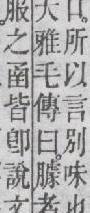 以言別味也
大雅毛傳曰臄者
服之圅皆卽說文